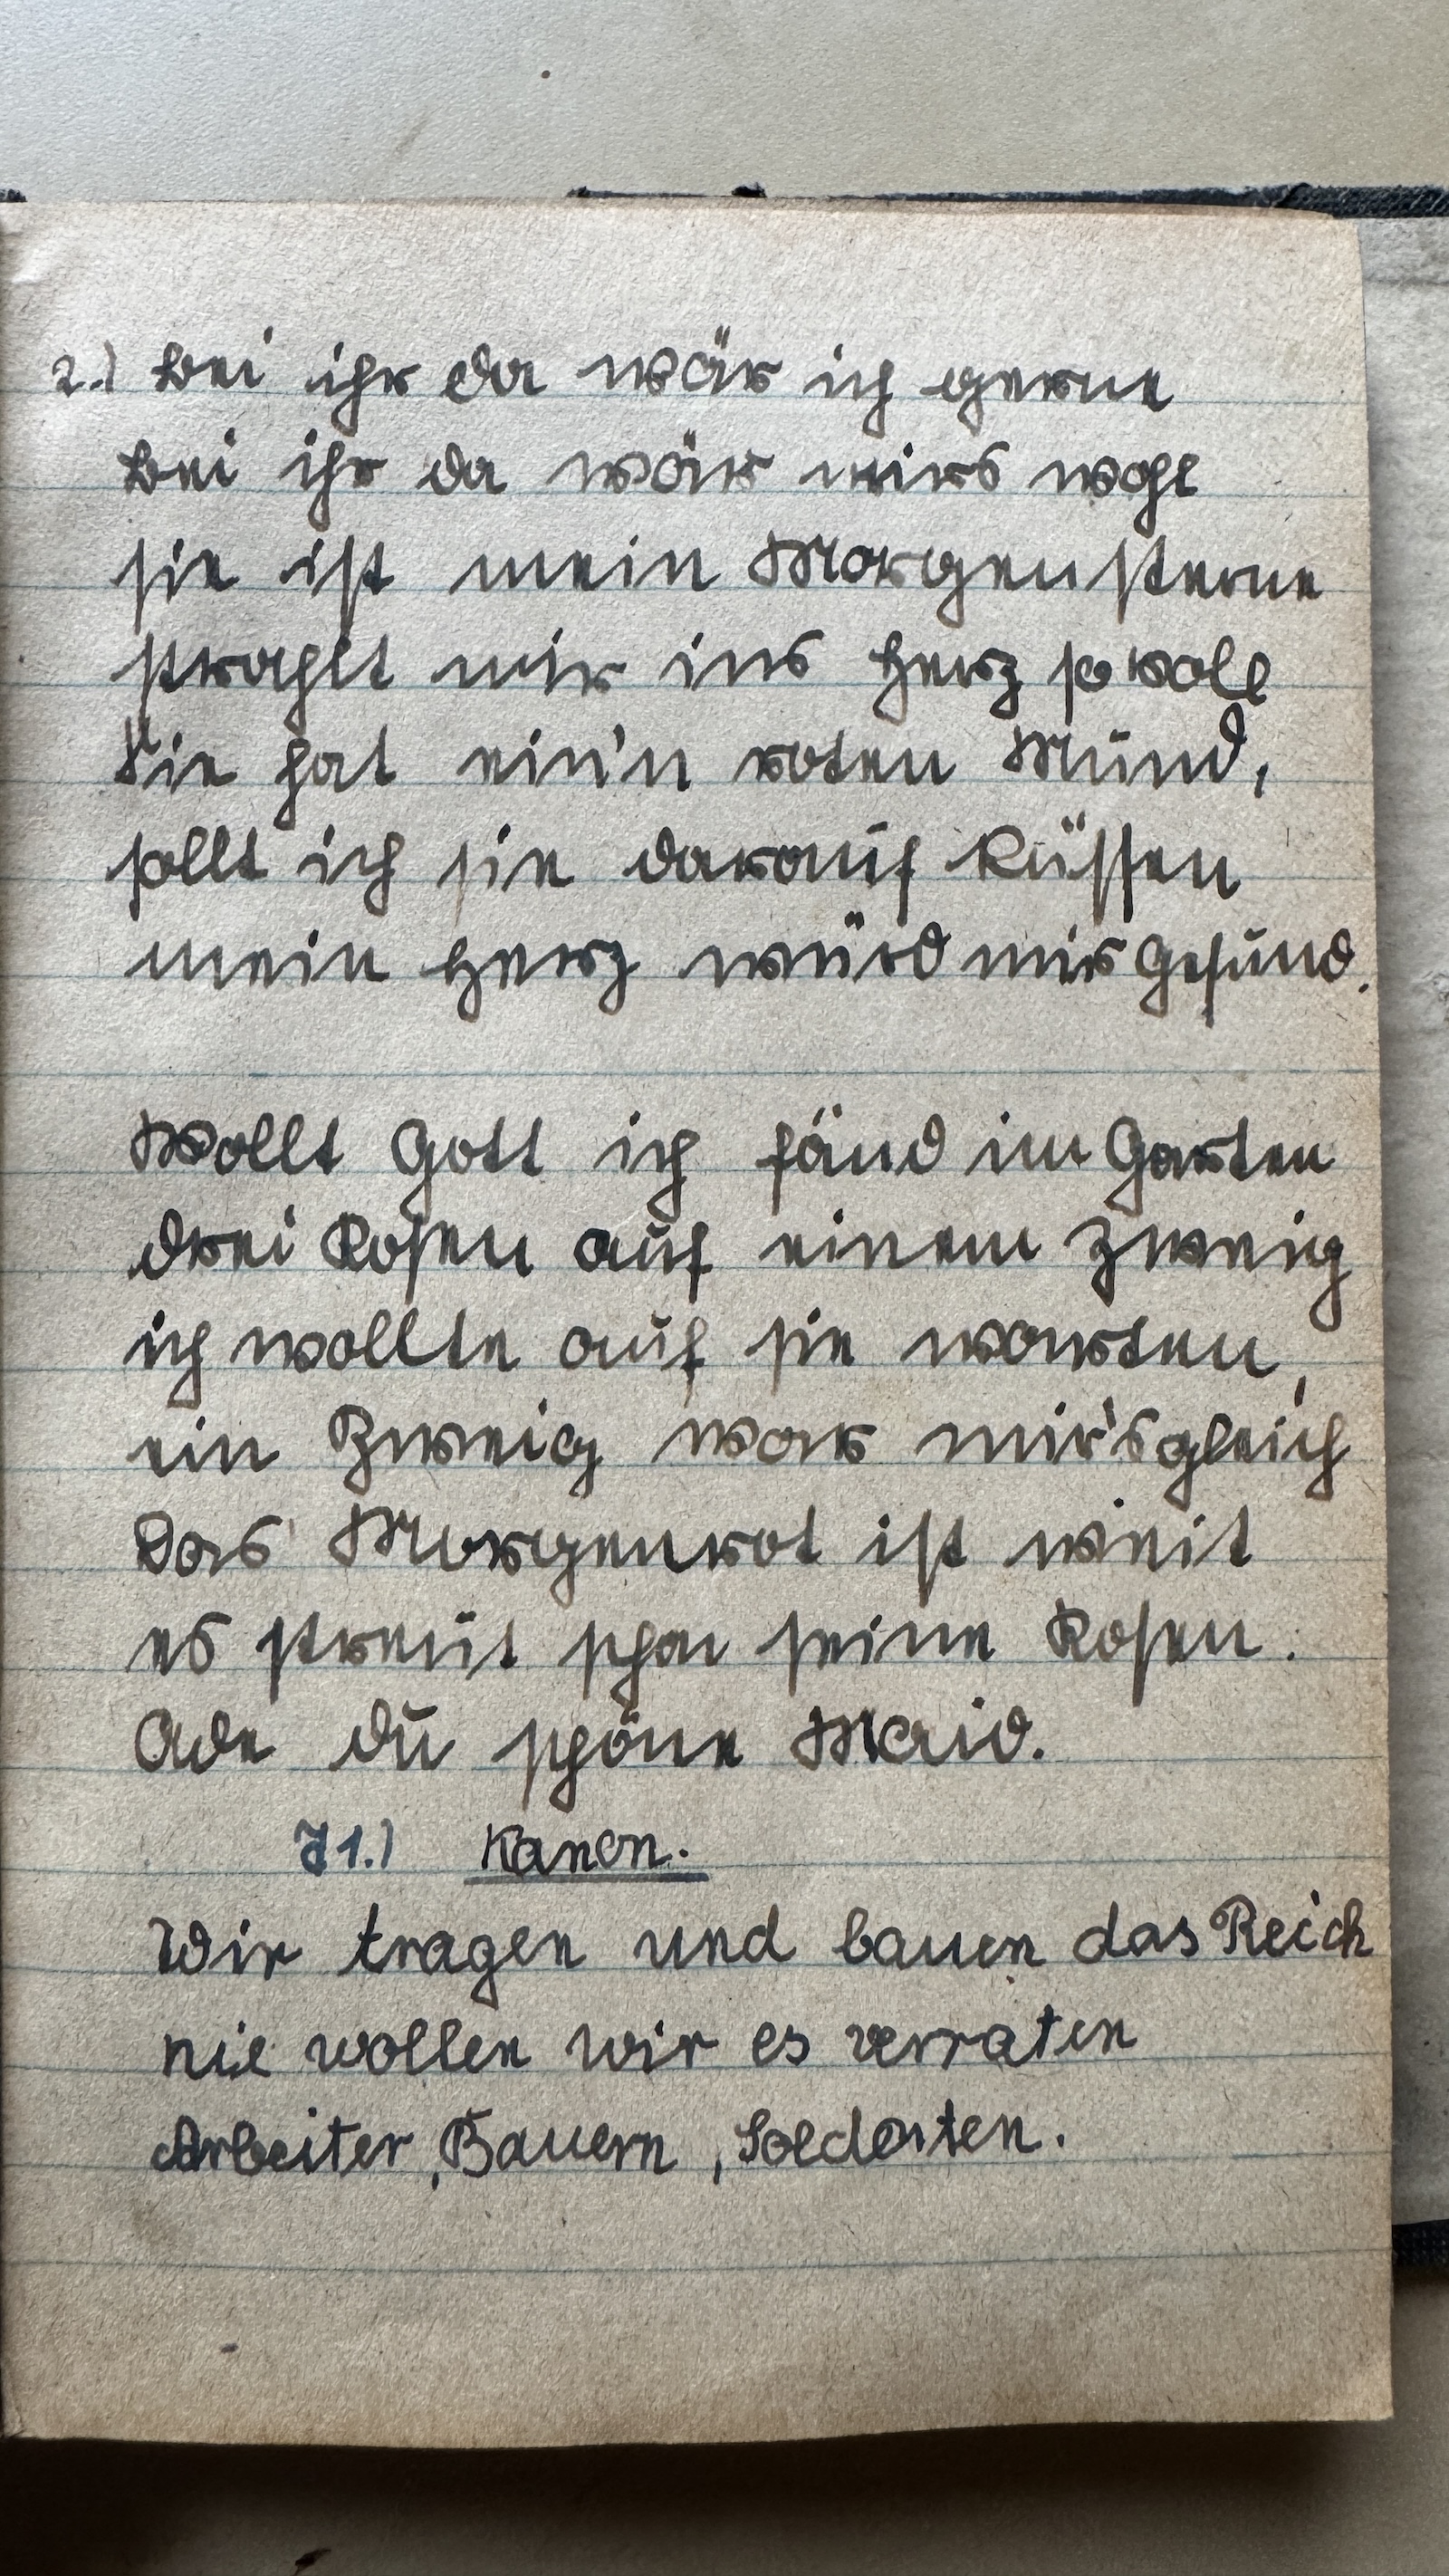 2.) Bei ihr da wär ich gerne
bei ihr da wär mirs wohl
sie ist mein Morgensterne
strahlt mir ins Herz so voll
Sie hat ein'n roten Mund,
sollt ich sie darauf küssen
mein Herz würd mir gesund.
Wollt Gott ich fänd im Garten
drei Rosen auf einem Zweig
ich wollte auf sie warten,
ein Zweig wär mir's gleich
Das Morgenrot ist weit
es streut schon seine Rosen.
Ade du schöne Maid.
71.) Kanon.
Wir tragen und bauen das Reich
nie wollen wir es verraten
Arbeiter, Bauern, Soldaten.